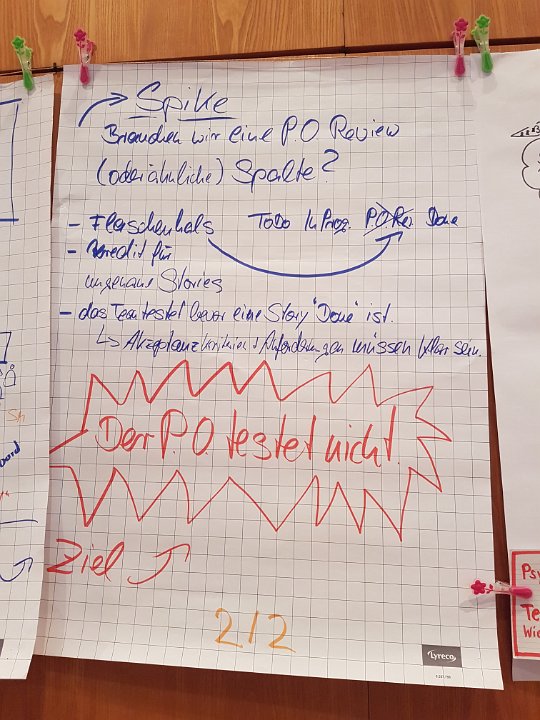 Spike
Brauchen wir eine P.O Review
(oder ähnliche) Spalte?
- Flaschenhals
ToDo In Prog. P.O Re. Done
- Kredit für
ungenaue Stories
- das Team testet bevor eine Story "Done" ist.
↳ Akzeptanzkriterien + Anforderungen müssen klar sein.
Der P.O. testet nicht.
Ziel
2/2
Lyreco